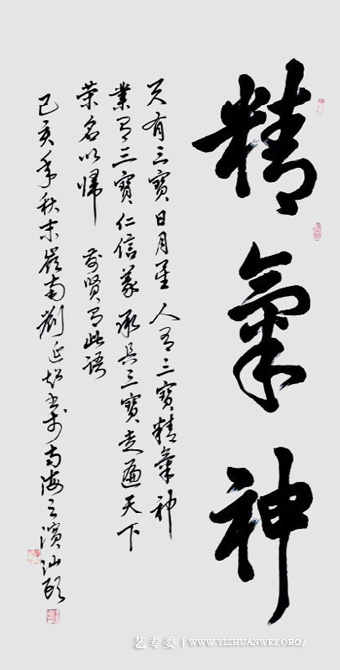 精氣神
天有三寶日月星 人有三寶精氣神
業有三寶仁信義 三寶走遍天下
荣名以歸 前賢有此語
己亥年秋末嶺南劉延书於南海之濱汕頭
艺专委 | WWW.YIZHUANWEI.ORG/